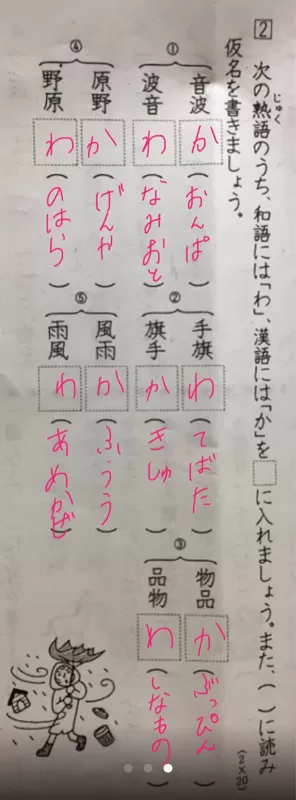 2 次の熟語のうち、和語には「わ」、漢語には「か」を□に入れましょう。また、( )に読み
じゅく
仮名を書きましょう。
(2×20)
①
音波 か (おんぱ)
波音 わ (なみおと)
②
手旗 わ (てばた)
旗手 か (きしゅ)
③
物品 か (ぶっぴん)
品物 わ (しなもの)
④
原野 か (げんや)
野原 わ (のはら)
⑤
風雨 か (ふうう)
雨風 わ (あめかぜ)